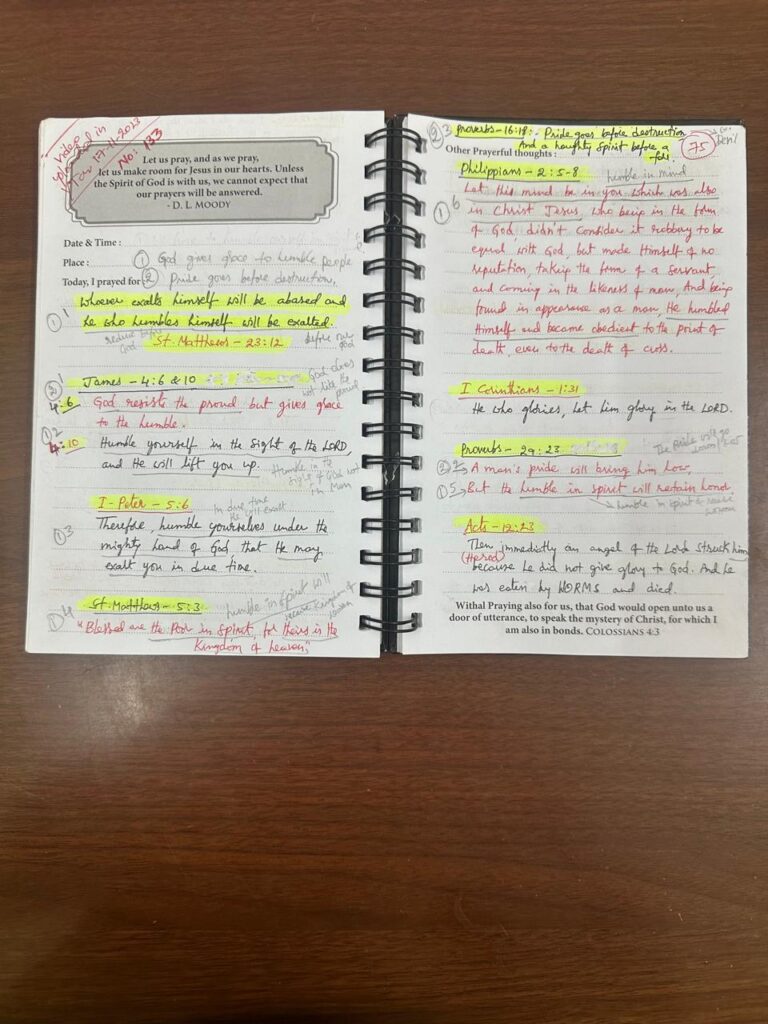 Video
in
For 17-11-2023
No: 133
Let us pray, and as we pray,
let us make room for Jesus in our hearts. Unless
the Spirit of God is with us, we cannot expect that
our prayers will be answered.
- D. L. MOODY
Date & Time :
Place : ① God gives grace to humble people
Today, I prayed for ② Pride goes before destruction.
① 1 Whoever exalts himself will be abased and
he who humbles himself will be exalted.
reduce before God
St. Matthews - 23:12
before our God
② 1 James - 4:6 & 10
God does not like the proud
4:6 God resists the proud but gives grace
to the humble.
① 2
4:10 Humble yourself in the sight of the LORD,
and He will lift you up.
Humble in the sight of God not in Man
I - Peter - 5:6
In due time will exalt
① 3 Therefore, humble yourselves under the
mighty hand of God, that He may
exalt you in due time.
① 4 St. Matthews - 5:3
humble in spirit will receive Kingdom of heaven
"Blessed are the Poor in Spirit, for theirs is the
Kingdom of heaven."
② 3 Proverbs - 16:18 :- Pride goes before destruction
And a haughty spirit before a
fall.
75
Other Prayerful thoughts :
Philippians - 2:5-8
humble in mind
① 6 Let this mind be in you which was also
in Christ Jesus, who being in the form
of God, didn't consider it robbery to be
equal with God, but made Himself of no
reputation, taking the form of a servant,
and coming in the likeness of man, And being
found in appearance as a man, He humbled
Himself and became obedient to the point of
death, even to the death of cross.
I Corinthians - 1:31
He who glories, let him glory in the LORD.
Proverbs - 29:23
The pride will go
② 2 A man's pride will bring him low,
① 5 But the humble in spirit will retain honor
humble in spirit & receive honour
Acts - 12:23
Then immediately an angel of the Lord struck him
(Herod)
because he did not give glory to God. And he
was eaten by WORMS and died.
Withal Praying also for us, that God would open unto us a
door of utterance, to speak the mystery of Christ, for which I
am also in bonds. COLOSSIANS 4:3